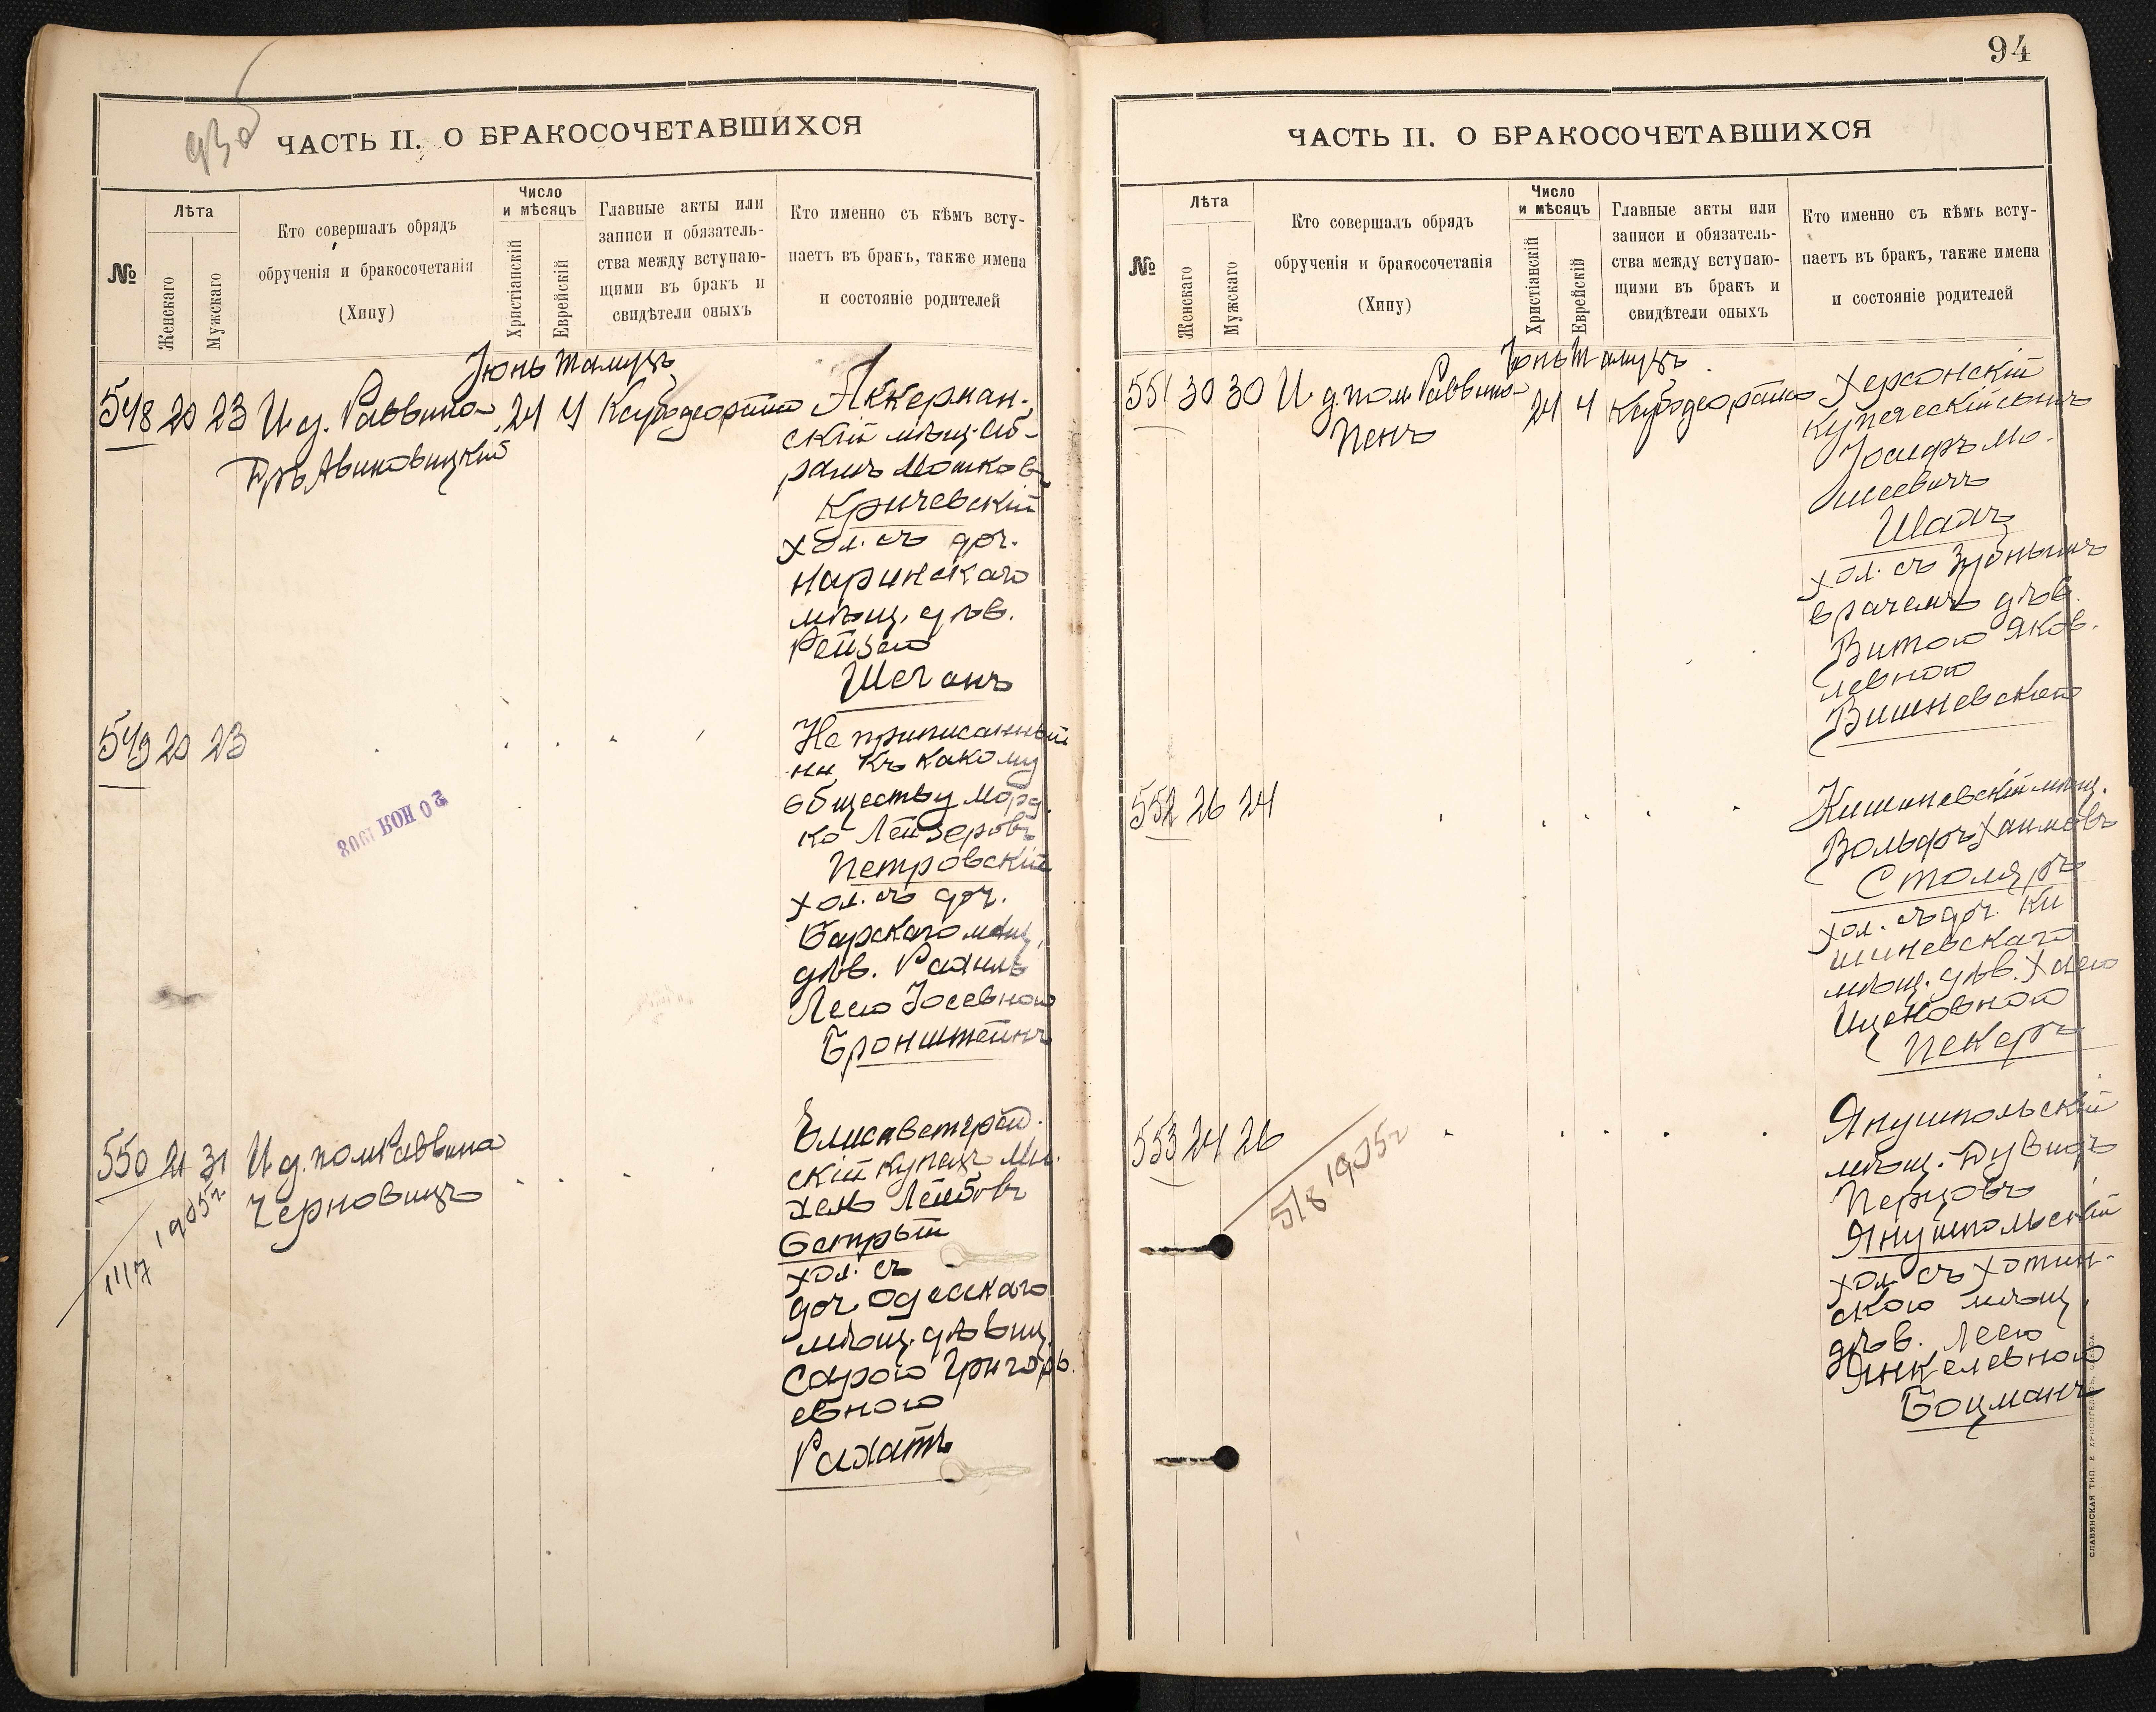 93об
ЧАСТЬ II. О БРАКОСОЧЕТАВШИХСЯ
№
Лѣта
Женскаго
Мужскаго
Кто совершалъ обрядъ
обрученія и бракосочетанія
(Хипу)
Число
и мѣсяцъ
Христіанскій
Еврейскій
Главные акты или
записи и обязатель-
ства между вступаю-
щими въ бракъ и
свидѣтели оныхъ
Кто именно съ кѣмъ всту-
паетъ въ бракъ, также имена
и состояніе родителей
Іюнь Тамузъ
548 20 23 И. д. Раввина 24 4
Аккерман-
скій мѣщ. Аб-
рамъ Мошковъ
Кричевскій
хол. съ доч.
мѣщ. дѣв.
Рейзею
549 20 23
Не приписанный
ни къ какому
обществу Морд-
ко Лейзеровъ
Петровскій
хол. съ доч.
Барскаго мѣщ.
дѣв. Рахиль
Леею Іосевною
Бронштейнъ
20 НОЯ 1908
550 21 31 И. д. пом. Раввина
Черновицъ
1117 1905г.
Елисаветград-
скій купецъ Ми-
хель Лейбовъ
Острый
хол. съ
доч. Одесскаго
мѣщ. дѣвиц.
Сарою Григорь-
евною
94
ЧАСТЬ II. О БРАКОСОЧЕТАВШИХСЯ
№
Лѣта
Женскаго
Мужскаго
Кто совершалъ обрядъ
обрученія и бракосочетанія
(Хипу)
Число
и мѣсяцъ
Христіанскій
Еврейскій
Главные акты или
записи и обязатель-
ства между вступаю-
щими въ бракъ и
свидѣтели оныхъ
Кто именно съ кѣмъ всту-
паетъ въ бракъ, также имена
и состояніе родителей
Іюнь Тамузъ
551 30 30 И. д. пом. Раввина 24 4
Пенъ
Херсонскій
купеческій сынъ
Іосифъ Мо-
исеевичъ
хол. съ зубнымъ
врачемъ дѣв.
Витою Яков-
левною
Вишневскою
552 26 24
Кишиневскій мѣщ.
Вольфъ Хаимовъ
Столяръ
хол. съ доч. Ки
шиневскаго
мѣщ. дѣв. Хаею
Ицковною
Пекеръ
553 24 26
518 1905г
Янушпольскій
мѣщ. Дувидъ
Перцовъ
Янушпольскій
хол. съ Хотин-
скою мѣщ.
дѣв. Леею
Янкелевною
Боцманъ
СЛАВЯНСКАЯ ТИП. Е. ХРИСОГЕЛОСЪ, ОДЕССА.